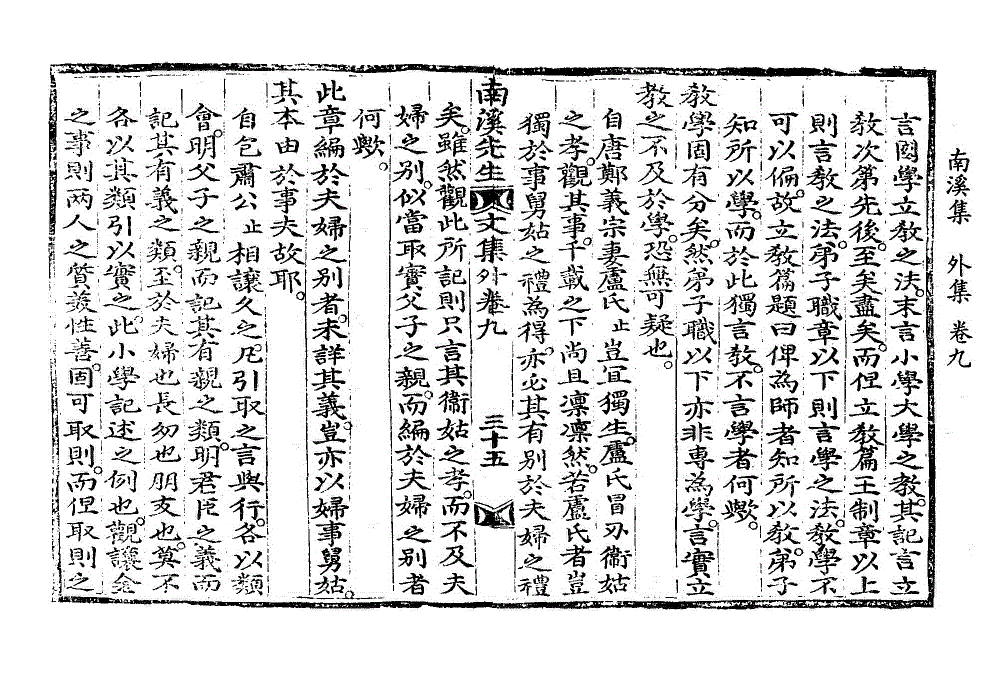 南溪集　外集　卷九
言國學立教之法。末言小學大學之教。其記言立
教次第先後。至矣盡矣。而但立教篇王制章以上
則言教之法。弟子職章以下則言學之法。教學不
可以偏。故立教篇題曰俾為師者知所以教。弟子
知所以學。而於此獨言教。不言學者何歟。
教學固有分矣。然弟子職以下亦非專為學。言實立
教之不及於學。恐無可疑也。
自唐鄭義宗妻盧氏止豈宜獨生。盧氏冒刃衛姑
之孝。觀其事。千載之下尚且凜凜然。若盧氏者豈
獨於事舅姑之禮為得。亦必其有別於夫婦之禮
南溪先生文集外卷九　三十五
矣。雖然觀此所記則只言其衛姑之孝。而不及夫
婦之別。似當取實父子之親。而編於夫婦之別者
何歟。
此章編於夫婦之別者。未詳其義。豈亦以婦事舅姑。
其本由於事夫故耶。
自包肅公止相讓久之。凡引取之言與行。各以類
會。明父子之親而記其有親之類。明君臣之義而
記其有義之類。至於夫婦也長幼也朋友也。莫不
各以其類引以實之。此小學記述之例也。觀讓金
之事則两人之質羙性善。固可取則。而但取則之